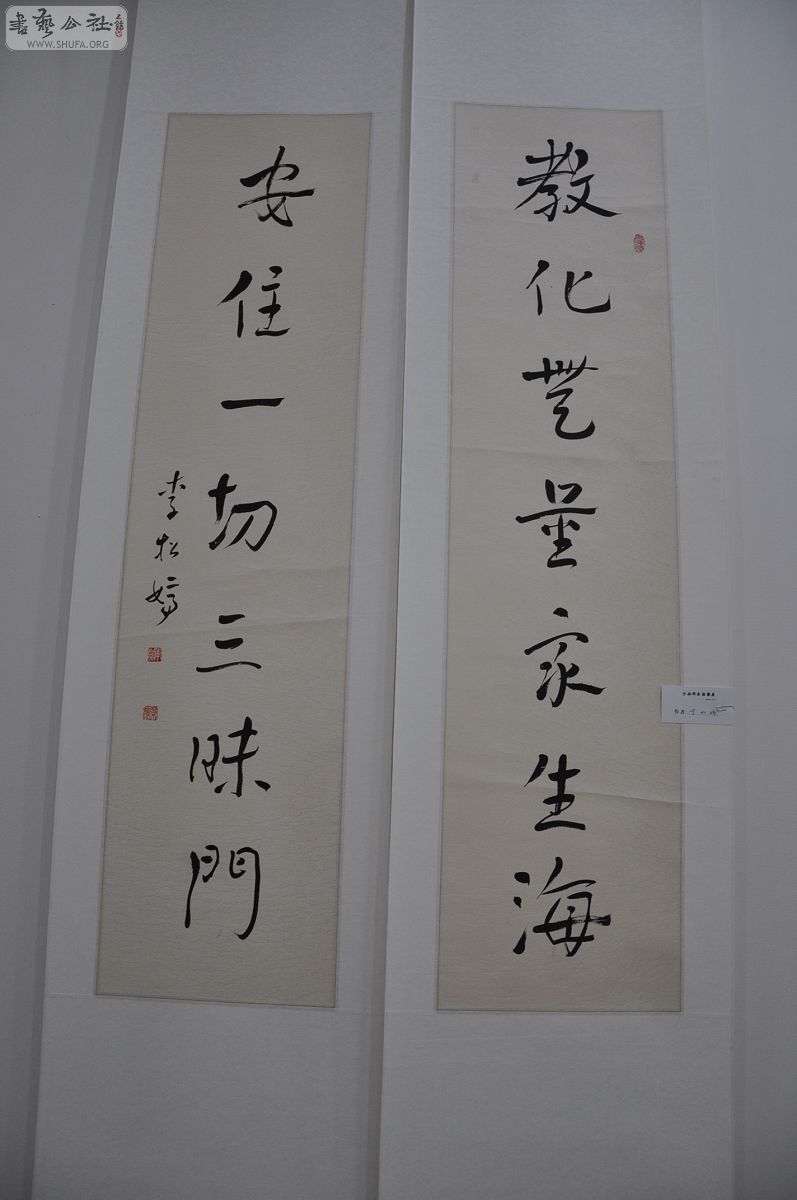 教化無量眾生海
安住一切三昧門
李松
書藝公社
WWW.SHUFA.ORG